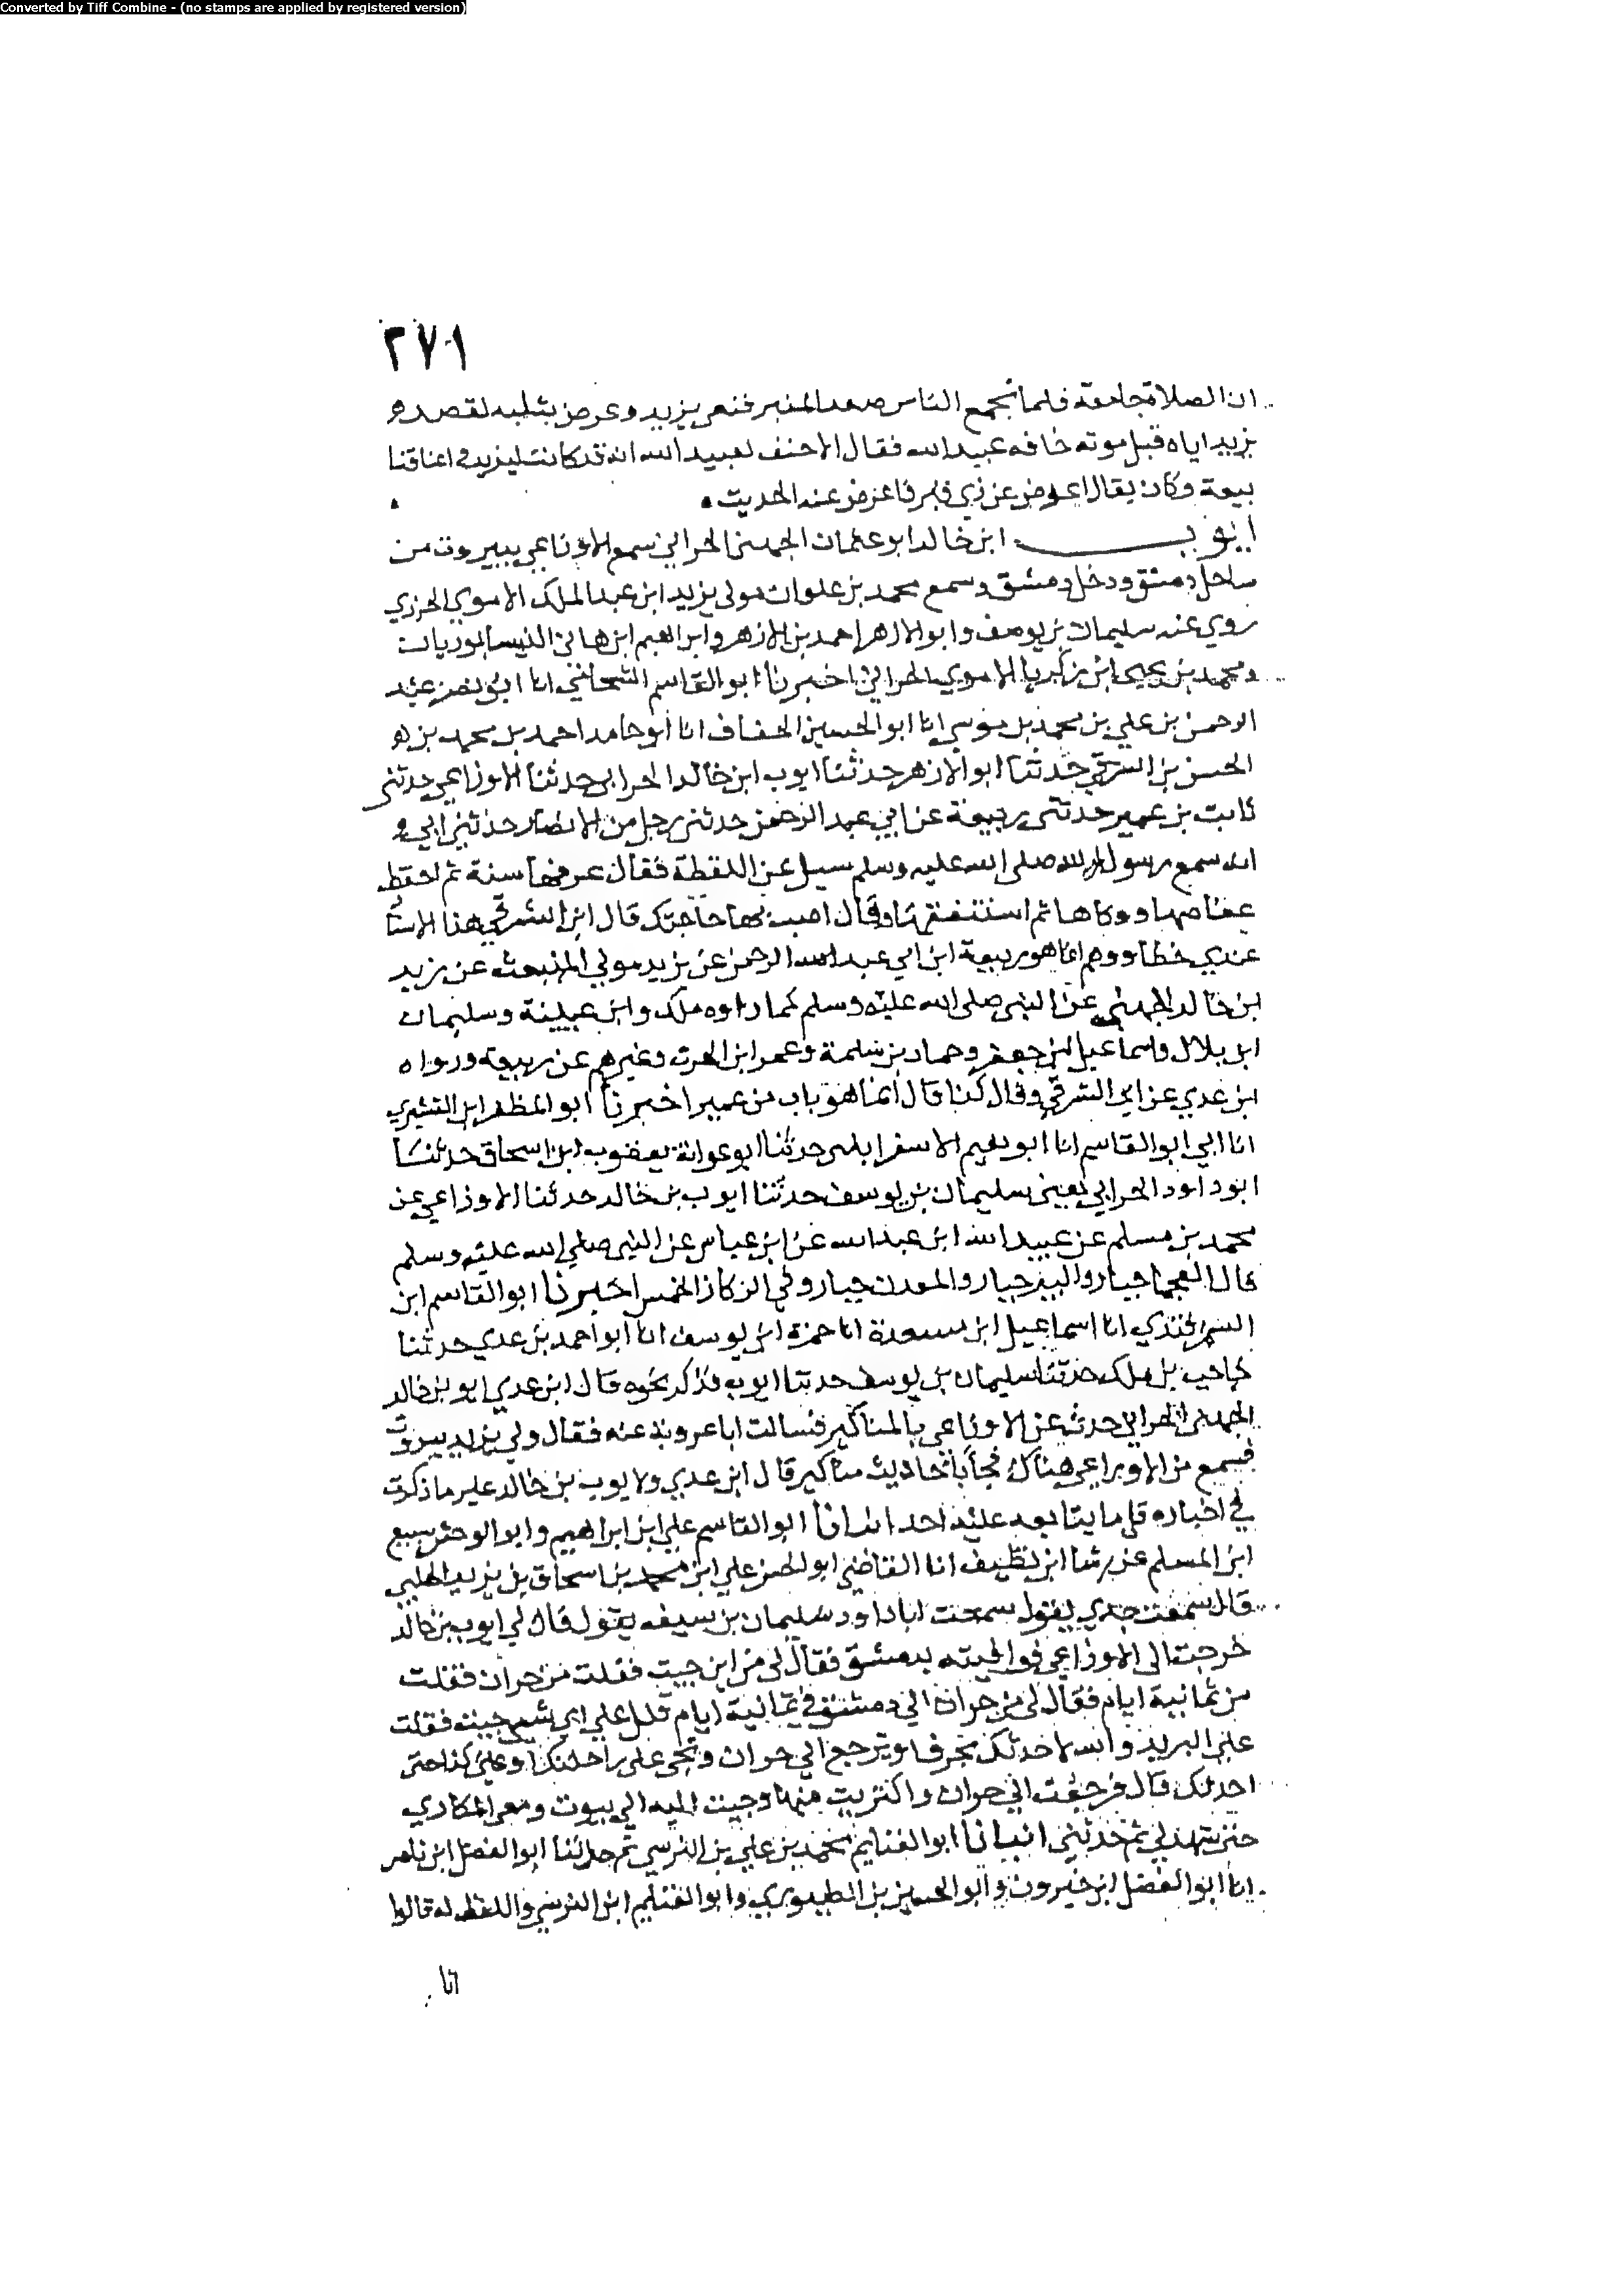 Converted by Tiff Combine - (no stamps are applied by registered version)
٢٧١
ان الصلاة جامعة فلما تجمع الناس صعد المنبر فنعى يزيد وعرض بثلبه لقصد
يزيد اياه قبل موته خافه عبيد الله فقال الاحنف لعبيد الله انه قد كانت ليزيد في اعناقنا
بيعة وكان يقال اعرض عن ذي قبر فاعرض عنه الحديث
ايوب ابن خالد ابو عثمان الجهني الحراني سمع الاوزاعي ببيروت من
ساحل دمشق ودخل دمشق وسمع محمد بن علوان مولى يزيد ابن عبد الملك الاموي الجزري
روي عنه سليمان بن يوسف وابو الازهر احمد بن الازهر وابراهيم ابن هاني النيسابوريان
ومحمد بن يحيى ابن زكريا الاموي الحراني اخبرنا ابو القاسم الشحامي انا ابو نصر عبد
الرحمن بن علي بن محمد بن موسى انا ابو الحسين الخفاف انا ابو حامد احمد بن محمد بن
الحسن بن الشرقي حدثنا ابو الازهر حدثنا ايوب ابن خالد الحراني حدثنا الاوزاعي حدثني
ثابت بن عمير حدثني ربيعة عن ابي عبد الرحمن حدثني رجل من الانصار حدثني ابي
انه سمع رسول الله صلى الله عليه وسلم سيل عن اللقطة فقال عرفها سنة ثم احفظ
عفاصها ووكاها ثم استنفقها وقال اصب بها حاجتك قال ابن الشرقي هذا الاسنا
عندي خطا ووهم انما هو ربيعة ابن ابي عبد الله الرحمن عن يزيد مولى المنبعث عن زيد
بن خالد الجهني عن النبي صلى الله عليه وسلم كما رواه ملك وابن عيينة وسليمان
ابن بلال واسماعيل بن جعفر وحماد بن سلمة وعمر ابن الحرث وغيرهم عن ربيعة ورواه
ابن عدي عن ابن الشرقي وقال كذا قال انما هو باب من عمير اخبرنا ابو المظفر ابن القشيري
انا ابي ابو القاسم انا ابو نعيم الاسفرايني حدثنا ابو عوانة يعقوب ابن اسحاق حدثنا
ابو داود الحراني يعني سليمان بن يوسف حدثنا ايوب بن خالد حدثنا الاوزاعي عن
محمد بن مسلم عن عبيد الله ابن عبد الله عن ابن عباس عن النبي صلي الله عليه وسلم
قال العجما جبار والبير جبار والمعدن جبار وفي الركاز الخمس اخبرنا ابو القاسم ابن
السمرقندي انا اسماعيل ابن مسعدة انا حمزة ابن يوسف انا ابو احمد بن عدي حدثنا
حاجب بن ملك حدثنا سليمان بن يوسف حدثنا ايوب فذكر نحوه قال ابن عدي ايوب بن خالد
الجهني الحراني حدث عن الاوزاعي بالمناكير فسالت ابا عروبة عنه فقال ولي بريد بيروت
فسمع من الاوزاعي هناك فجا باحاديث مناكير قال ابن عدي ولايوب بن خالد غير ما ذكرت
في اخباره قل ما يتابعه عليه احد انبانا ابو القاسم علي ابن ابراهيم وابو الوحش سبيع
ابن المسلم عن رشا ابن نظيف انا القاضي ابو الحسن علي ابن محمد بن اسحاق بن يزيد الحلبي
قال سمعت جدي يقول سمعت ابا داود سليمان بن سيف يقول قال لي ايوب بن خالد
خرجت الى الاوزاعي فوافيته بدمشق فقال لي من اين جيت فقلت من حران فقلت
من ثمانية ايام فقال لي من حران الي دمشق في ثمانية ايام قلل علي اي شي جيت فقلت
علي البريد والله لا حدثتك بحرف او ترجع الي حران وتجي على راحلتك او علي كذا حتى
احدثك قال فرجعت الي حران واكتريت منها وجيت اليه الي بيروت ومعي المكاري
حتى شهد لي ثم حدثني انبانا ابو الغنايم محمد بن علي بن النرسي ثم حدثنا ابو الفضل ابن ناصر
انا ابو الفضل ابن خيرون وابو الحسين بن الطيوري وابو الغنايم ابن النرسي واللفظ له قالوا
انا